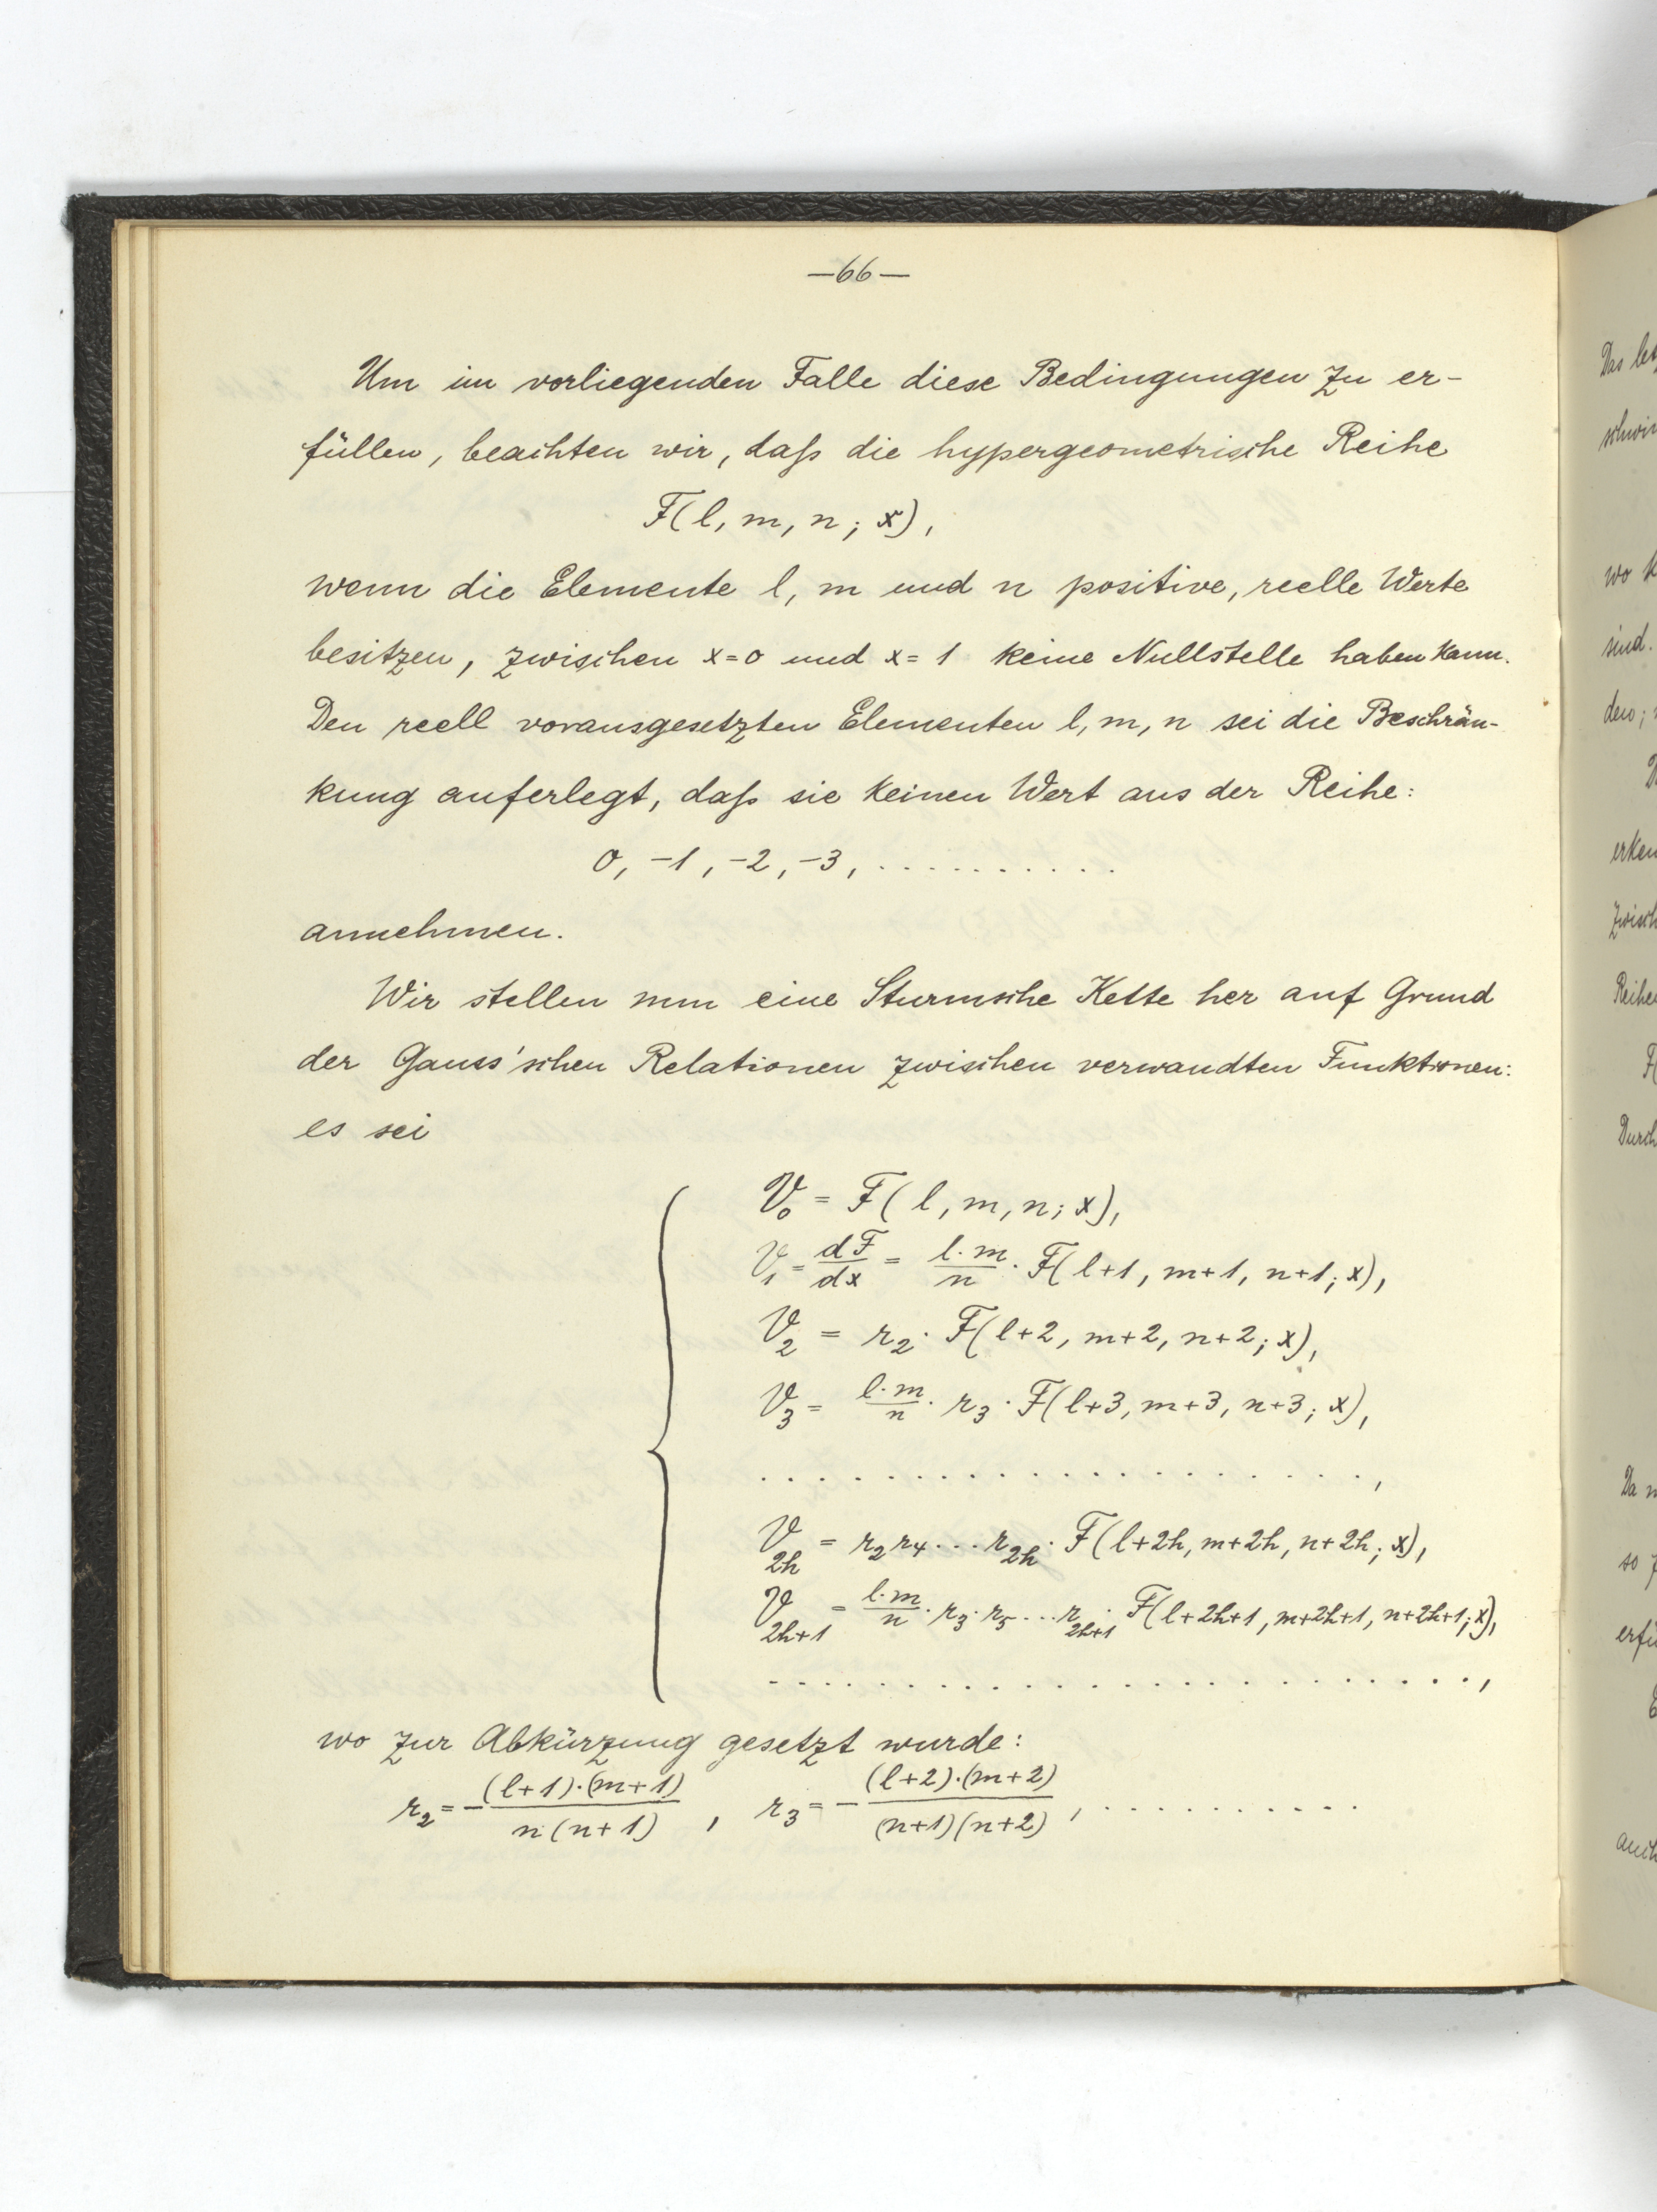 —66—
Um im vorliegenden Falle diese Bedingungen zu er-
füllen, beachten wir, daß die hypergeometrische Reihe
F(l, m, n; x),
wenn die Elemente l, m und n positive, reelle Werte
besitzen, zwischen x=0 und x=1 keine Nullstelle haben kann.
Den reell vorausgesetzten Elementen l, m, n sei die Beschrän-
kung auferlegt, daß sie keinen Wert aus der Reihe:
0, -1, -2, -3, . . . . . . . . . .
annehmen.
Wir stellen nun eine Sturmsche Kette her auf Grund
der Gauss'schen Relationen zwischen verwandten Funktionen:
es sei
V₀ = F(l, m, n; x),
V₁ = dF/dx = l·m/n · F(l+1, m+1, n+1; x),
V₂ = r₂ · F(l+2, m+2, n+2; x),
V₃ = l·m/n · r₃ · F(l+3, m+3, n+3; x),
. . . . . . . . . . . . . . . . . . . . ,
V_2h = r₂ r₄ ... r_2h · F(l+2h, m+2h, n+2h; x),
V_2h+1 = l·m/n · r₃ · r₅ ... r_2h+1 · F(l+2h+1, m+2h+1, n+2h+1; x),
. . . . . . . . . . . . . . . . . . . . . . . ,
wo zur Abkürzung gesetzt wurde:
r₂ = -(l+1)·(m+1)/n(n+1) , r₃ = -(l+2)·(m+2)/(n+1)(n+2) , . . . . . . . . . . .
Das
wo
sind.
den;
Da
so